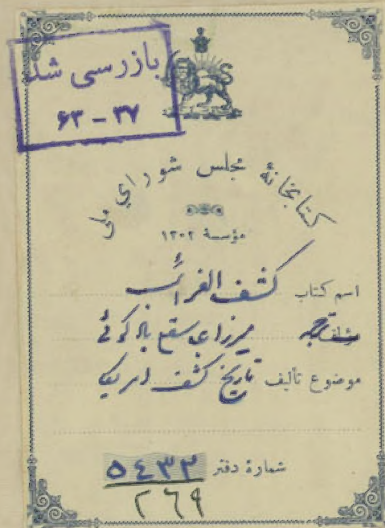 بازرسی شد
۶۳ - ۳۷
کتابخانهٔ مجلس شورای ملی
مؤسسهٔ ۱۳۰۲
اسم کتاب کشف الغرائب
مترجم میرزا
موضوع تألیف تاریخ کشف امریک
شمارهٔ دفتر ۵۴۳۳
۲۶۹